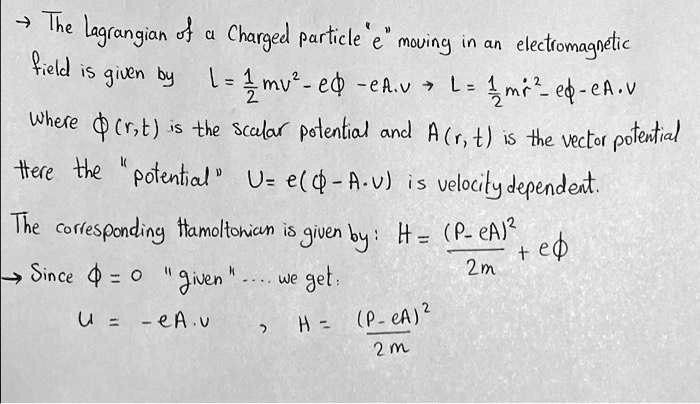 → The Lagrangian of a Charged particle "e" moving in an electromagnetic
field is given by L = 1/2 mv² - eϕ - eA.v → L = 1/2 mṙ² - eϕ - eA.v
Where ϕ(r,t) is the scalar potential and A(r,t) is the vector potential
Here the "potential" U = e(ϕ - A.v) is velocity dependent.
The corresponding Hamoltonian is given by: H = (P - eA)²/2m + eϕ
→ Since ϕ = 0 "given" .... we get:
U = -eA.v , H = (P - eA)²/2m